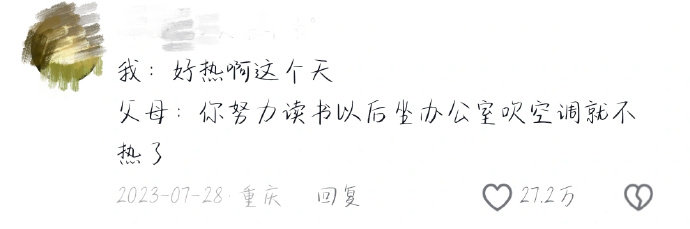 我：好热啊这个天
父母：你努力读书以后坐办公室吹空调就不
热了
2023-07-28·重庆 回复 27.2万